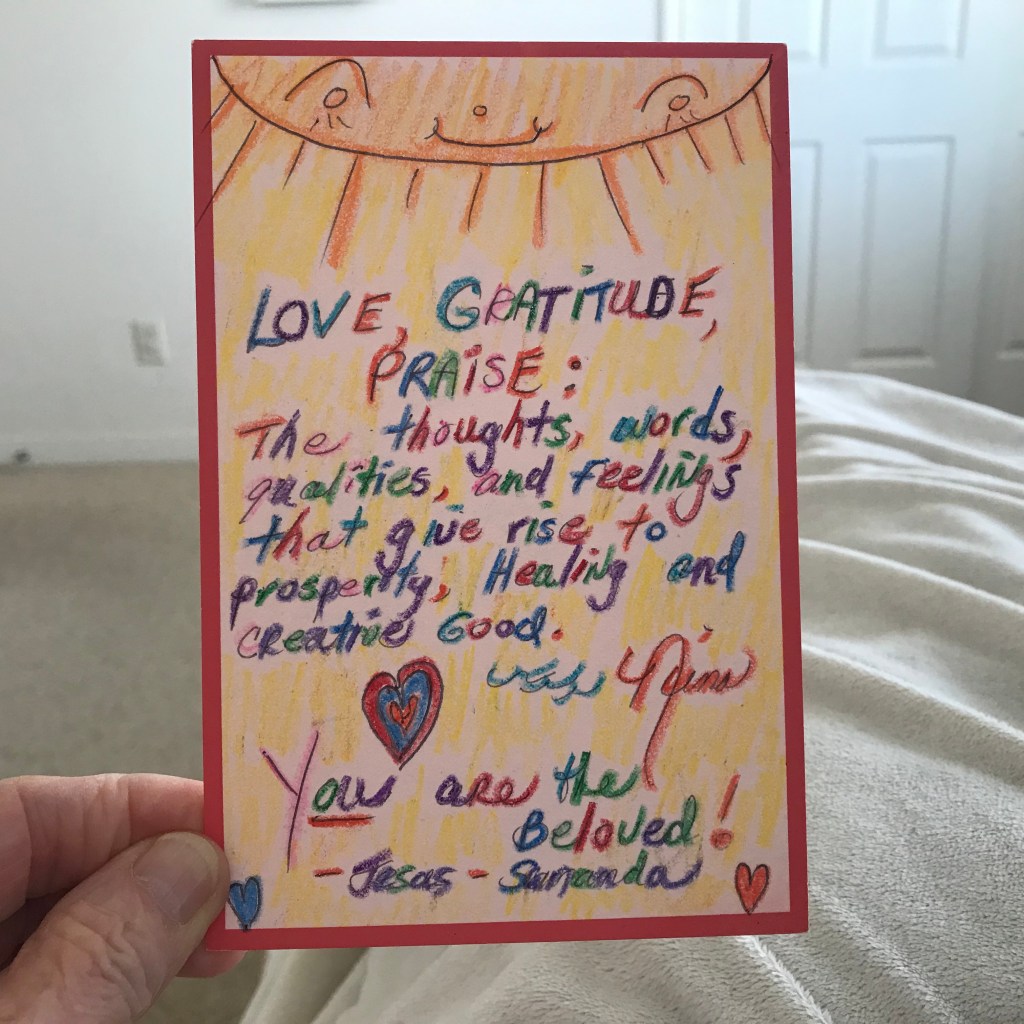 LOVE, GRATITUDE,
PRAISE:
The thoughts, words,
qualities, and Feelings
that give rise to
prosperity, Healing and
creative Good.
You are the
Beloved!
- Jesus -